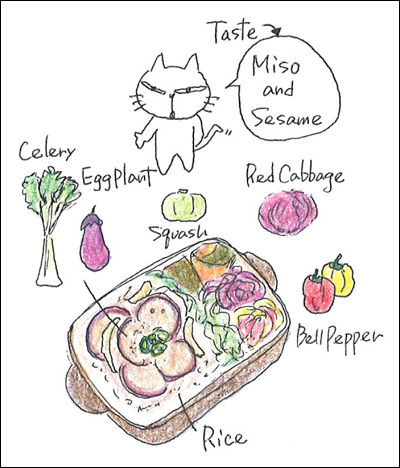 Taste
Miso
and
Sesame
Celery
EggPlant
Squash
Red Cabbage
Bell Pepper
Rice